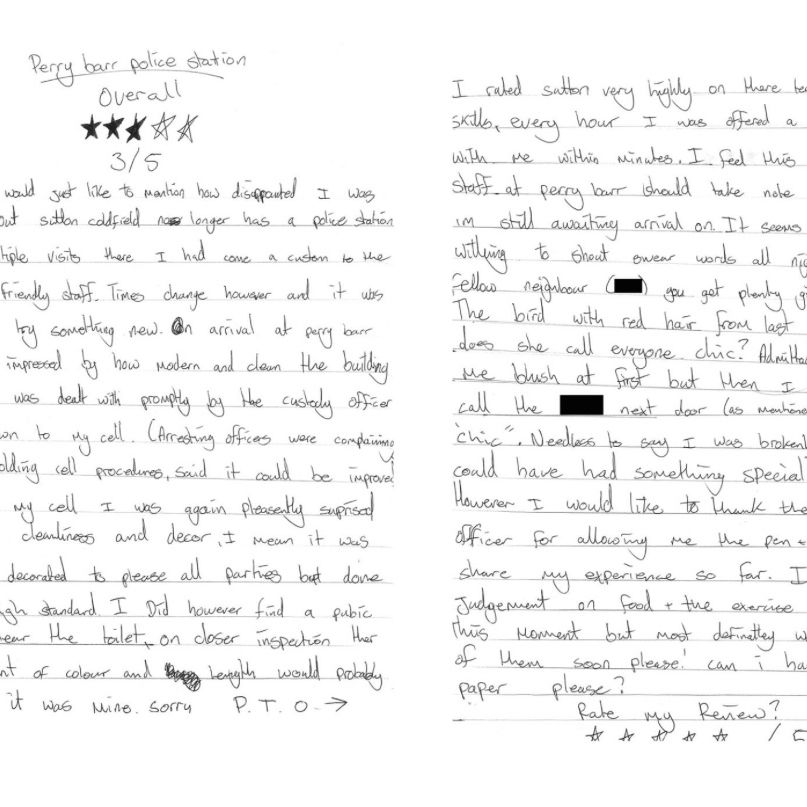 Perry barr police station
Overall
3/5
would just like to mention how disappointed I was
out sutton coldfield no longer has a police station
tiple visits there I had come a custom to the
friendly staff. Times change however and it was
try something new. On arrival at perry barr
impressed by how modern and clean the building
was dealt with promptly by the custody officer
wn to my cell. (Arresting officers were complaining
olding cell procedures, said it could be improved
my cell I was again pleasently suprised
cleanliness and decor, I mean it was
decorated to please all parties but done
gh standard. I Did however find a pubic
near the toilet, on closer inspection ther
nt of colour and length would probably
it was mine. Sorry P.T.O →
I rated sutton very highly on there tea
skills, every hour I was offered a
with me within minutes. I feel this
staff at perry barr should take note
im still awaiting arrival on. It seems
withing to shout swear words all nig
fellow neighbour ( ) you get plenty gi
The bird with red hair from last
does she call everyone chic? Admitted
me blush at first but then I
call the next door (as mentione
"chic". Needless to say I was broken
could have had something special
However I would like to thank the
officer for allowing me the pen +
share my experience so far. I
Judgement on food + the exercise
this moment but most definetley w
of them soon please! can i ha
paper please?
Rate my Review?
/ 5